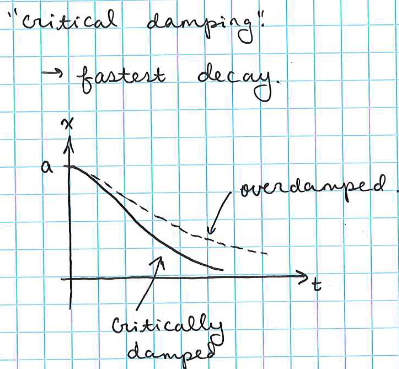 "critical damping".
→ fastest decay.
x
a
overdamped.
t
critically
damped